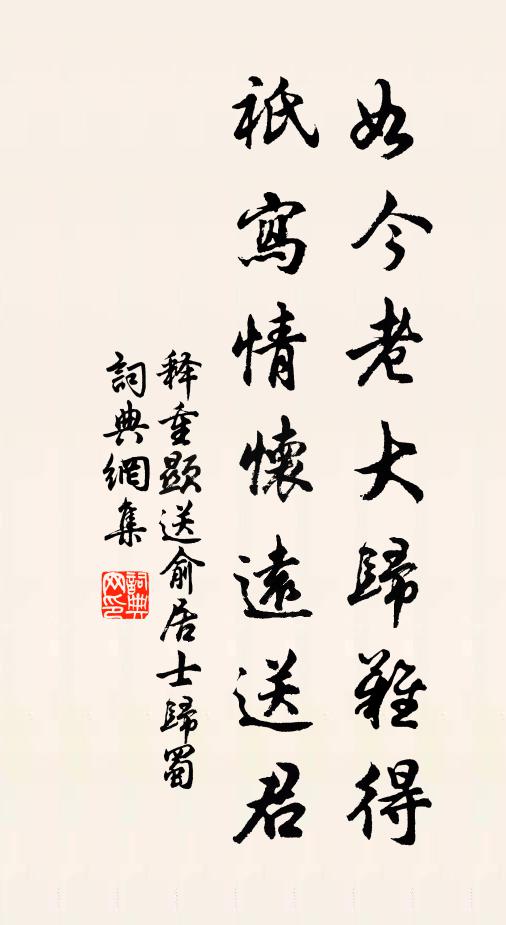 如今老大歸難得
祇寫情懷遠送君
释重顯送俞居士歸蜀
詞典網集
詞典网印